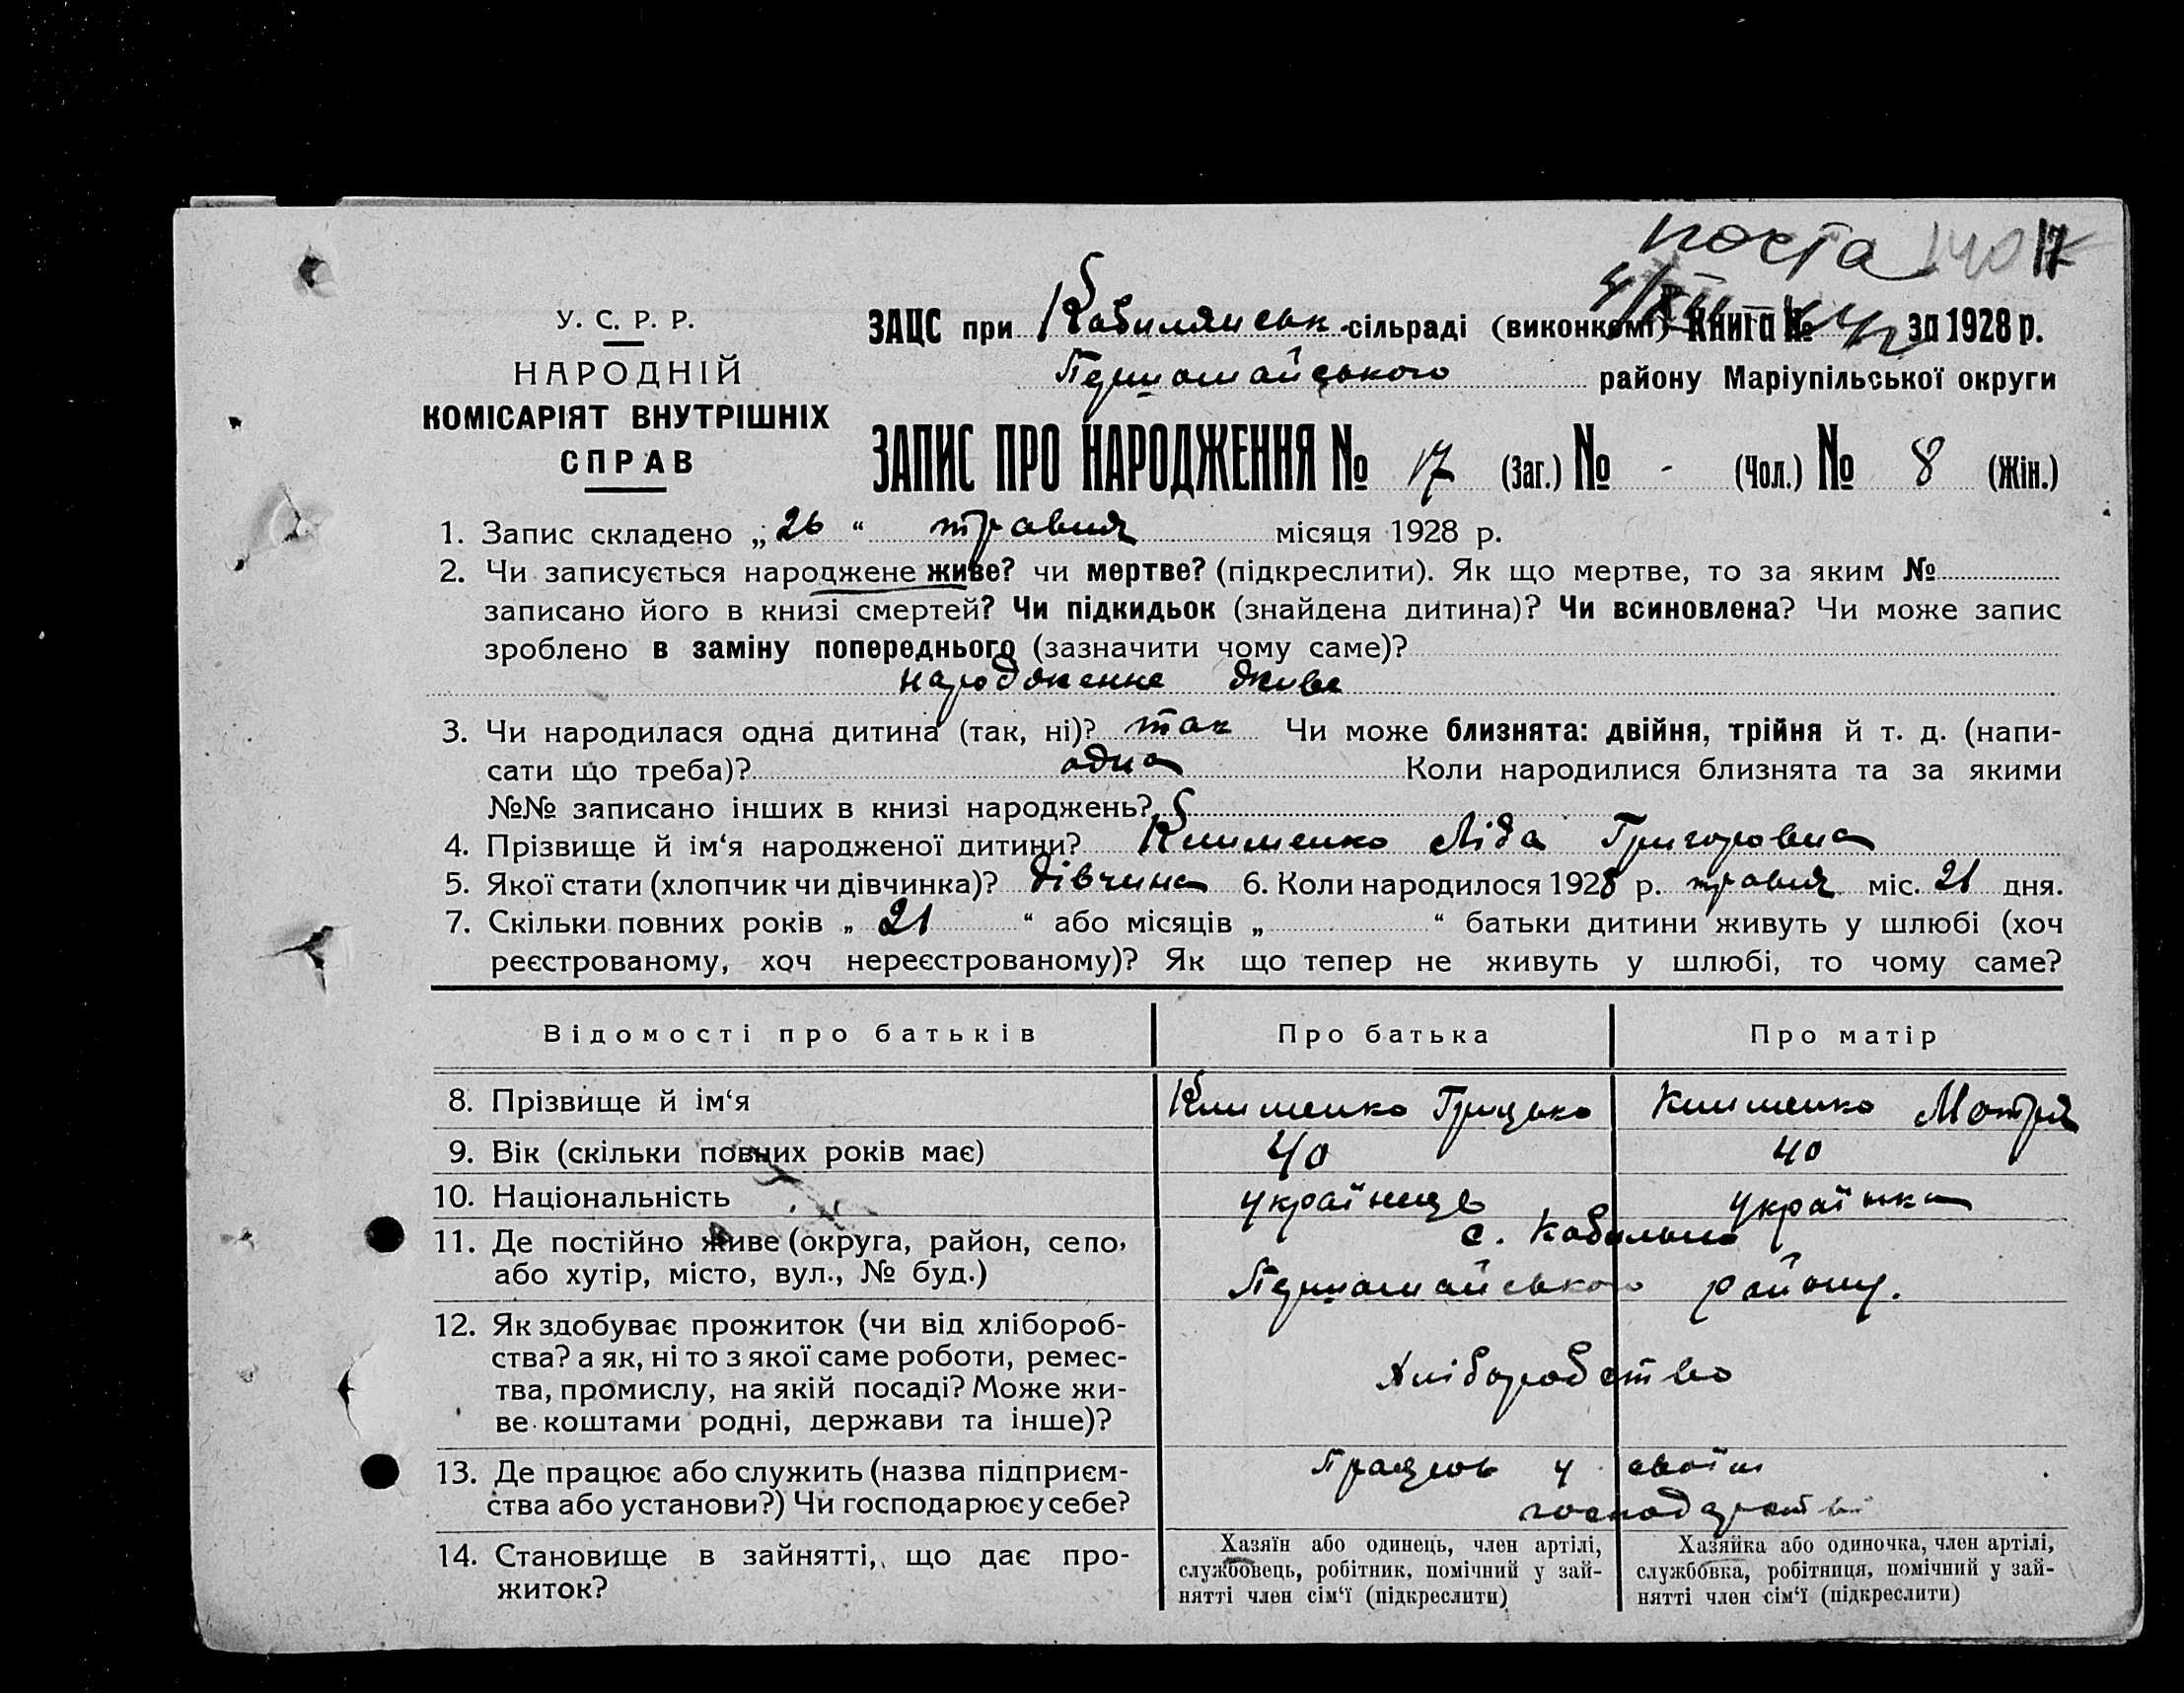 поста 140 17
У. С. Р. Р.
НАРОДНІЙ
КОМІСАРІЯТ ВНУТРІШНІХ
СПРАВ
ЗАЦС при Кобилянськ-сільраді (виконкомі) Книга № за 1928 р.
Першомайського району Маріупільської округи
ЗАПИС ПРО НАРОДЖЕННЯ № 17 (Заг.) № - (Чол.) № 8 (Жін.)
1. Запис складено „ 26 “ травня місяця 1928 р.
2. Чи записується народжене живе? чи мертве? (підкреслити). Як що мертве, то за яким №
записано його в книзі смертей? Чи підкидьок (знайдена дитина)? Чи всиновлена? Чи може запис
зроблено в заміну попереднього (зазначити чому саме)?
народженне живе
3. Чи народилася одна дитина (так, ні)? так Чи може близнята: двійня, трійня й т. д. (напи-
сати що треба)? одна Коли народилися близнята та за якими
№№ записано інших в книзі народжень?
4. Прізвище й ім‘я народженої дитини? Клименко Ліда Григоровна
5. Якої стати (хлопчик чи дівчинка)? дівчина 6. Коли народилося 1928 р. травня міс. 21 дня.
7. Скільки повних років „ 21 “ або місяців „ “ батьки дитини живуть у шлюбі (хоч
реєстрованому, хоч нереєстрованому)? Як що тепер не живуть у шлюбі, то чому саме?
Відомості про батьків Про батька Про матір
8. Прізвище й ім‘я Клименко Грицько Клименко Мотря
9. Вік (скільки повних років має) 40 40
10. Національність українець українка
11. Де постійно живе (округа, район, село, с. Кобильне
або хутір, місто, вул., № буд.) Першомайського району.
12. Як здобуває прожиток (чи від хлібороб-
ства? а як, ні то з якої саме роботи, ремес-
тва, промислу, на якій посаді? Може жи- Хліборобство
ве коштами родні, держави та інше)?
13. Де працює або служить (назва підприєм- Працює у своїм
ства або установи?) Чи господарює у себе? господарстві
14. Становище в зайнятті, що дає про-
житок?
Хазяїн або одинець, член артілі,
службовець, робітник, помічний у зай-
нятті член сім‘ї (підкреслити)
Хазяйка або одиночка, член артілі,
службовка, робітниця, помічний у зай-
нятті член сім‘ї (підкреслити)